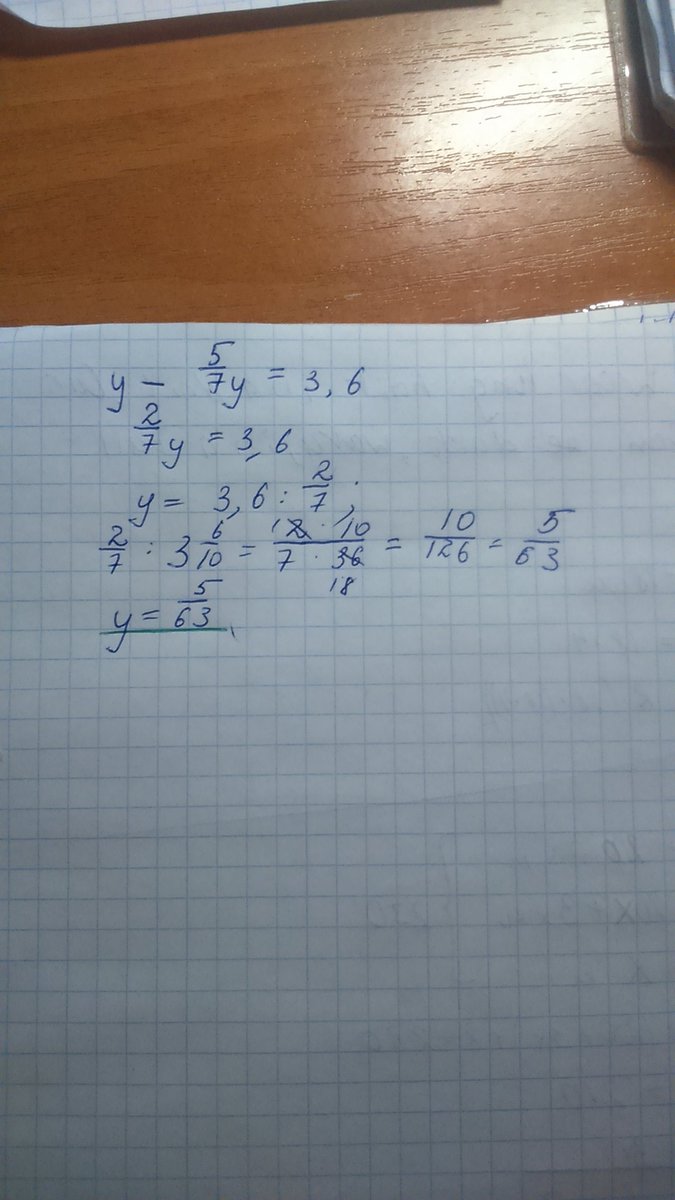 y - 5/7 y = 3,6
2/7 y = 3,6
y = 3,6 : 2/7 ;
2/7 : 3 6/10 = 1 2 · 10 / 7 · 36 18 = 10/126 = 5/63
y = 5/63